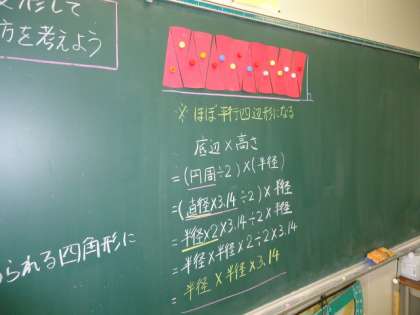 形して
方を考えよう
※ほぼ平行四辺形になる
底辺×高さ
=(円周÷2)×(半径)
=(直径×3.14÷2)×半径
=半径×2×3.14÷2×半径
=半径×半径×2÷2×3.14
=半径×半径×3.14
られる四角形に